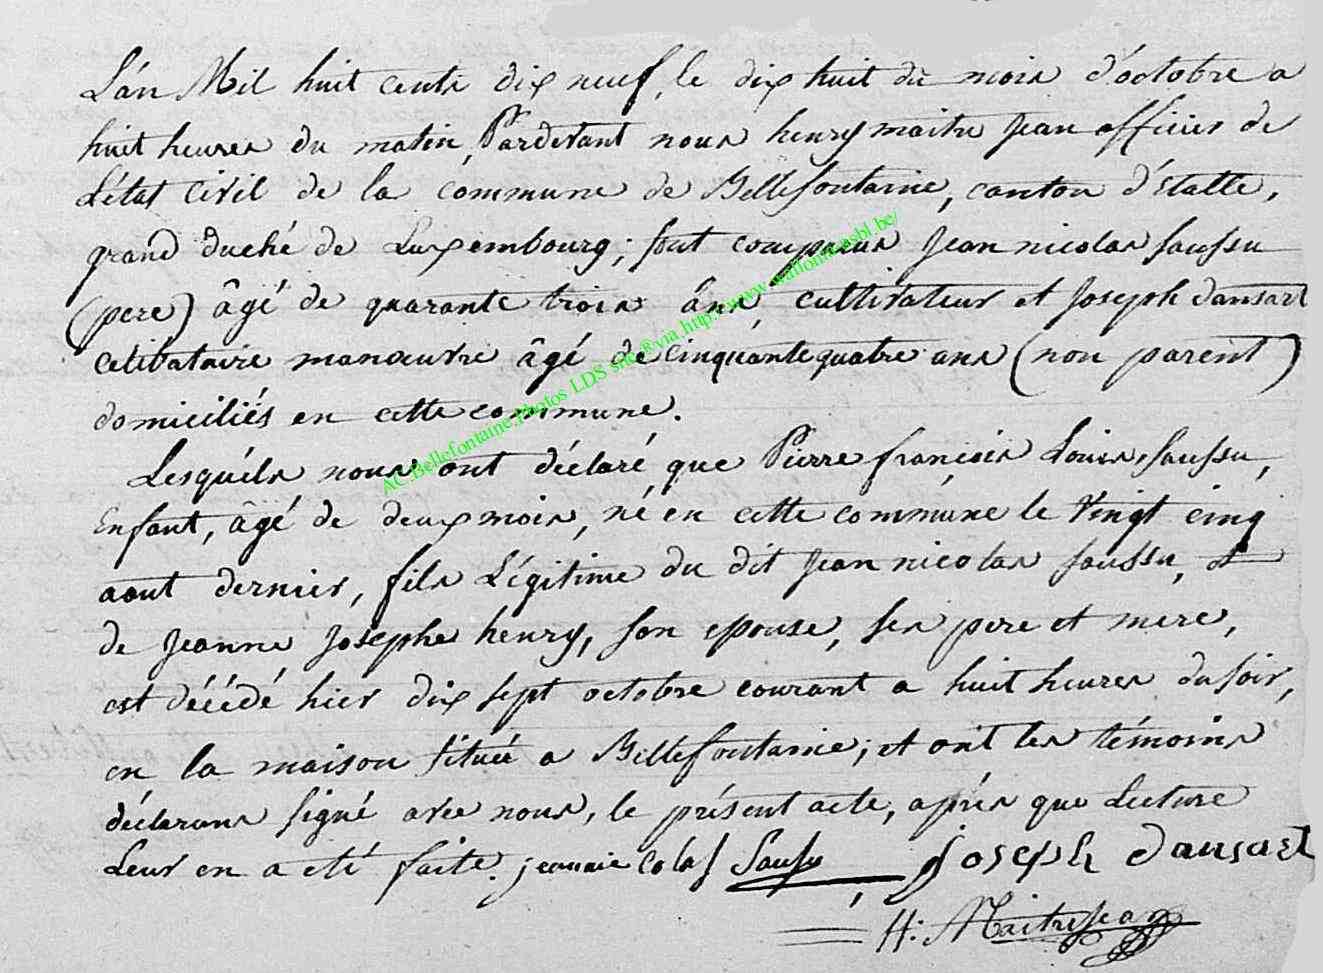 L'an Mil huit cents dix neuf, le dix huit du mois d'octobre a
huit heures du matin, Pardevant nous henry maitre Jean officier de
L'état Civil de la commune de Bellefontaine, canton d'étalle,
grand duché de Luxembourg; sont comparus Jean nicolas Saussu
(pere) âgé de quarante trois âns, cultivateur et Joseph dansart
celibataire manœuvre âgé de cinquante quatre ans (non parent)
domiciliés en cette commune.
Lesquéls nous ont déclaré que Pierre françois Louis, Saussu,
Enfant, âgé de deux mois, né en cette commune le Vingt cinq
aout dernier, fils Légitime du dit Jean nicolas Saussu, et
de Jeanne Josephe henry, son epouse, ses pere et mere,
est décédé hier dix sept octobre courant a huit heures du soir,
en la maison située a Bellefontaine; et ont les témoins
déclarans signé avec nous, le présent acte, aprés que Lecture
Leur en a eté faite. jeannicolas Sausu Joseph dansart
H: MaitreJean
AC.Bellefontaine.Photos LDS site®via.http://www.wallonia.asbl.be/